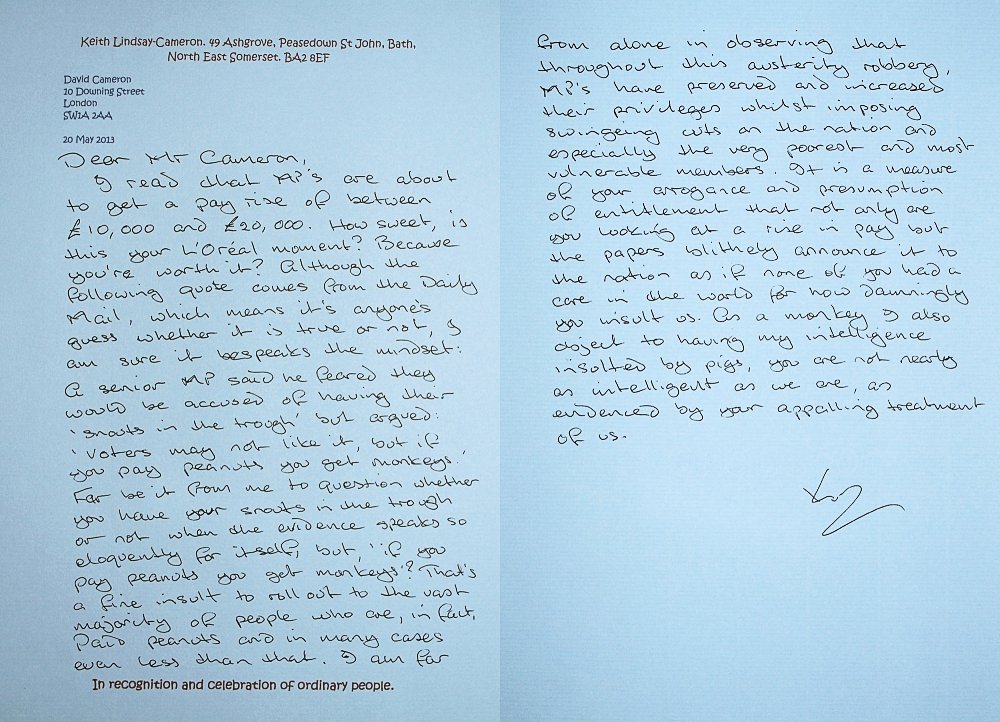 Keith Lindsay-Cameron. 49 Ashgrove, Peasedown St John, Bath,
North East Somerset. BA2 8EF
David Cameron
10 Downing Street
London
SW1A 2AA
20 May 2013
Dear Mr Cameron,
I read that MP's are about
to get a pay rise of between
£10,000 and £20,000. How sweet, is
this your L'Oréal moment? Because
you're worth it? Although the
following quote comes from the Daily
Mail, which means it's anyone's
guess whether it is true or not, I
am sure it bespeaks the mindset:
A senior MP said he feared they
would be accused of having their
'snouts in the trough' but argued:
'Voters may not like it, but if
you pay peanuts you get monkeys.'
Far be it from me to question whether
you have your snouts in the trough
or not when the evidence speaks so
eloquently for itself, but, 'if you
pay peanuts you get monkeys'? That's
a fine insult to roll out to the vast
majority of people who are, in fact,
paid peanuts and in many cases
even less than that. I am far
In recognition and celebration of ordinary people.
from alone in observing that
throughout this austerity robbery,
MP's have preserved and increased
their privileges whilst imposing
swingeing cuts on the nation and
especially the very poorest and most
vulnerable members. It is a measure
of your arrogance and presumption
of entitlement that not only are
you looking at a rise in pay but
the papers blithely announce it to
the nation as if none of you had a
care in the world for how damningly
you insult us. As a monkey I also
object to having my intelligence
insulted by pigs, you are not nearly
as intelligent as we are, as
evidenced by your appalling treatment
of us.